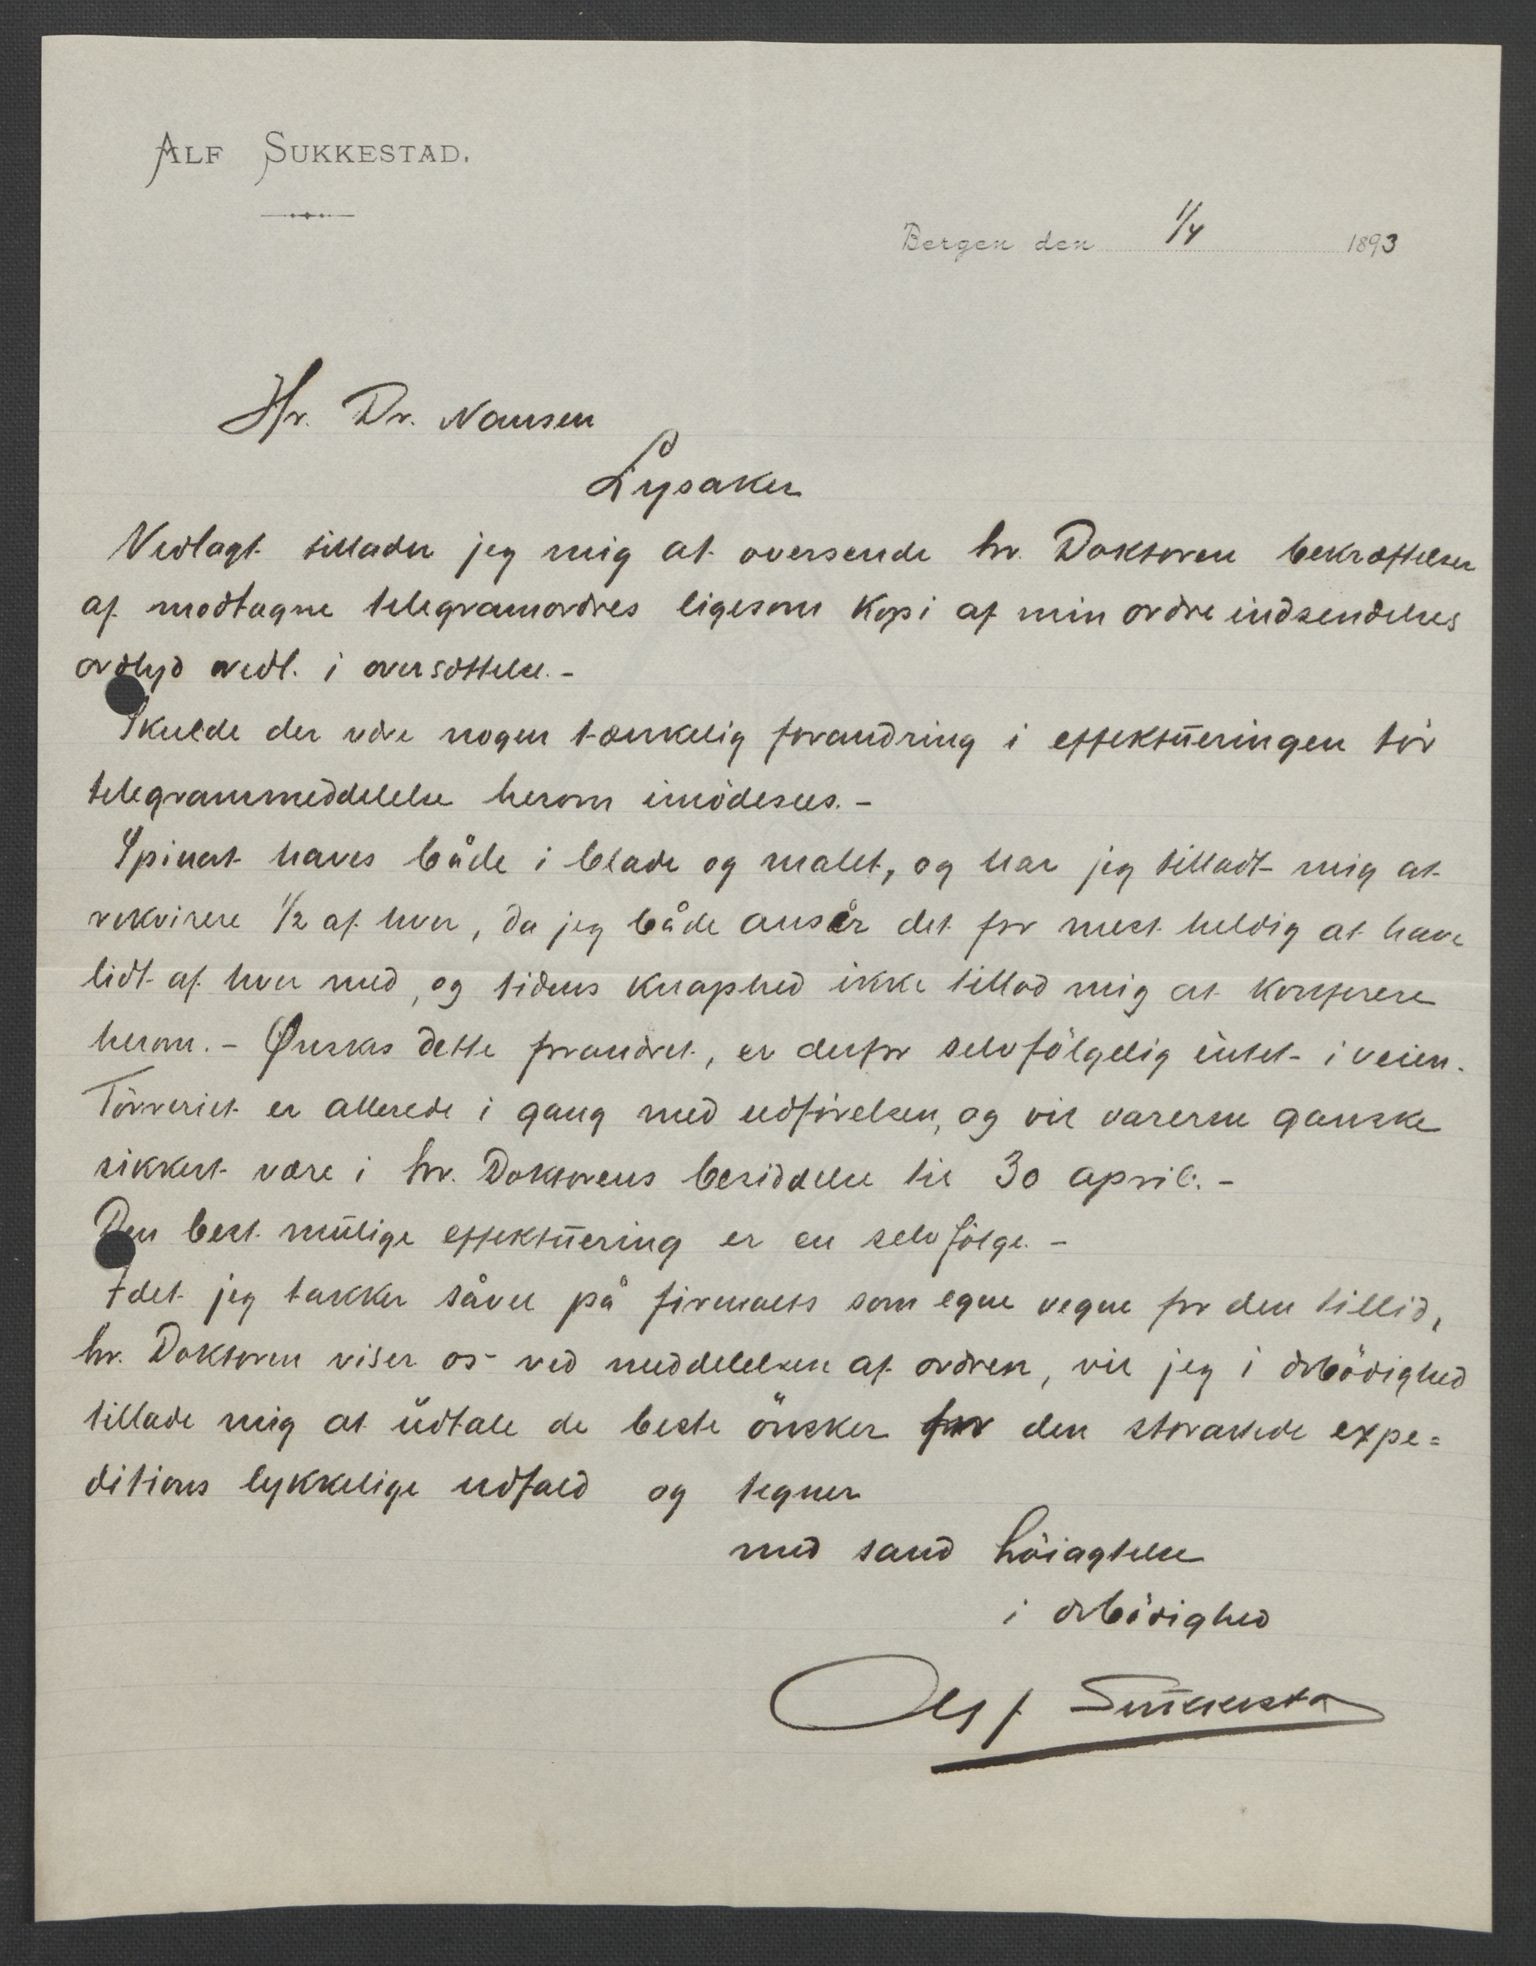 ALF SUKKESTAD.
Bergen den 1/4 1893
Hr. Dr. Nansen
Lysaker
Vedlagt tillader jeg mig at oversende hr. Doktoren bekræftelser
af modtagne telegramordres ligesom kopi af min ordreindsendelses
ordlyd vedl. i oversættelse. -
Skulde der være nogen tænkelig forandring i effektüeringen tör
telegrammeddelelse herom imödesees. -
Spinat haves både i blade og malet, og har jeg tilladt mig at
rekvirere 1/2 af hver, da jeg både ansér det for mest heldig at have
lidt af hver med, og tidens knaphed ikke tillod mig at konferere
herom. - Ønskes dette forandret, er derfor selvfölgelig intet i veien.
Törreriet er allerede i gang med udförelsen, og vil varerne ganske
sikkert være i hr. Doktorens besiddelse til 30 april. -
Den best mülige effektüering er en selvfölge. -
Idet jeg takker såvel på firmaets som egne vegne for den tillid,
hr. Doktoren viser os ved meddelelsen af ordren, vil jeg i ærbödighed
tillade mig at üdtale de beste önsker for den storartede expe=
ditions lykkelige udfald og tegner
med sand höiagtelse
i ærbödighed
Alf Sükkestad